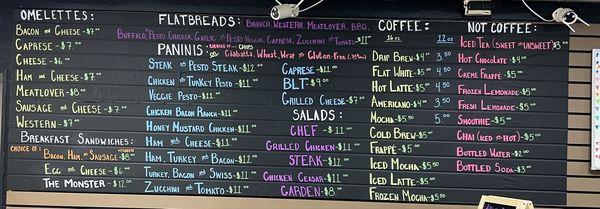 OMELETTES:
BACON AND CHEESE-$7.
CAPRESE-$7.
CHEESE-$6.
HAM AND CHEESE-$7.
MEATLOVER-$8
SAUSAGE AND CHEESE-$7.
WESTERN-$7.
BREAKFAST SANDWICHES:
CHOICE OF: BACON, HAM, OR SAUSAGE-$8
EGG AND CHEESE-$6.
THE MONSTER-$12.00
FLATBREADS: BRUNCH, WESTERN, MEATLOVER, BBQ,
BUFFALO, PESTO CHICKEN, GARLIC AND PESTO VEGGIE, CAPRESE, ZUCCHINI AND TOMATO-$11
PANINIS: CHOICE OF CHIPS
CIABATTA, WHEAT, WRAP OR GLUTEN-FREE
STEAK AND PESTO STEAK-$12.
CHICKEN AND TURKEY PESTO-$11.
VEGGIE PESTO-$11.
CHICKEN BACON RANCH-$11.
HONEY MUSTARD CHICKEN-$11.
HAM AND CHEESE-$11.
HAM, TURKEY AND BACON-$12.
TURKEY, BACON AND SWISS-$11.
ZUCCHINI AND TOMATO-$11.
CAPRESE-$11.
BLT-$9.00
GRILLED CHEESE-$7.
SALADS:
CHEF - $11.
GRILLED CHICKEN-$11.
STEAK-$12.
CHICKEN CEASAR-$11.
GARDEN-$8.
COFFEE:
16 OZ 12 OZ
DRIP BREW-$4. 3.50
FLAT WHITE-$5. 4.50
HOT LATTE-$5. 4.50
AMERICANO-$4. 3.50
MOCHA-$5.50 5.00
COLD BREW-$5.
FRAPPÉ-$5.
ICED MOCHA-$5.50
ICED LATTE-$5.
FROZEN MOCHA-$5.50
NOT COFFEE:
ICED TEA (SWEET OR UNSWEET)$3.
HOT CHOCOLATE-$4.
CREME FRAPPÉ-$5.
FROZEN LEMONADE-$5.
FRESH LEMONADE-$5.
SMOOTHIE-$5.
CHAI (ICED OR HOT)-$5.
BOTTLED WATER-$2.00
BOTTLED SODA-$3.